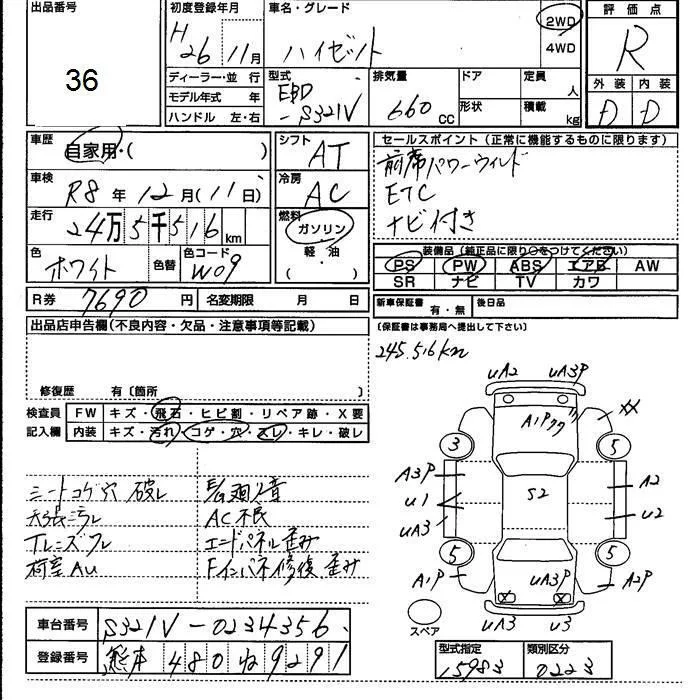 出品番号
36
初度登録年月
H 26 11月
車名・グレード
ハイゼット
2WD
4WD
評価点
R
外装 内装
D D
ディーラー・並行
モデル年式 年
ハンドル 左・右
型式
EBD
-S321V
排気量
660 CC
ドア
形状
定員 人
積載 kg
車歴
自家用・( )
車検
R8年12月(11日)
走行
24万5千516 km
色
ホワイト
色替
色コード
W09
シフト
AT
冷房
AC
燃料
ガソリン
軽・油
( )
セールスポイント(正常に機能するものに限ります)
前席パワーウィンド
ETC
ナビ付き
装備品(純正品に限り○をつけてください)
PS PW ABS エアB AW
SR ナビ TV カワ
R券 7690円
名変期限 月 日
新車保証書 有・無
後日品
(保証書は事務局へ提出して下さい)
出品店申告欄(不良内容・欠品・注意事項等記載)
修復歴 有〔箇所 〕
245.516km
検査員 FW キズ・飛石・ヒビ割・リペア跡・X要
記入欄 内装 キズ・汚れ・コゲ・穴・スレ・キレ・破レ
シートコゲ穴 破レ
天張ミラレ
荷室AU
AC不良
エードパネル歪み
Fインパネ修復 歪み
UA2 UA3P
A1P
XX
3 5
A3P
U1
UA3
S2
A2
U2
5 5
A1P
UA3P
A2P
スペア
UA3 U3
車台番号 S321V-0234356
登録番号 熊本 480 9291
型式指定 類別区分
15983 0223